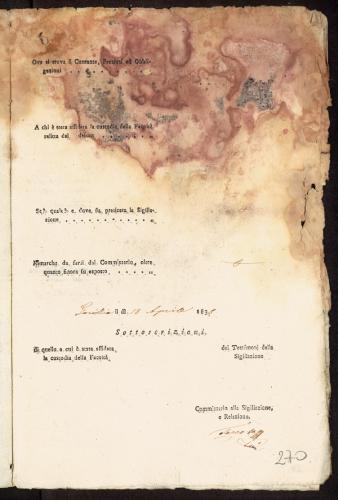 Ove si trova il Contante, Preziosi ed Obbli-
gazioni . . . . . . . . .
A chi è stata affidata la custodia della Facoltà
relitta dal defunto . . . . . .
Se, quale e dove fu praticata la Sigilla-
zione . . . . . . . . . .
Rimarche da farsi dal Commissario, oltre
quanto finora fu esposto . . . . .
il dì 18 Aprile 183
Sottoscrizioni.
di quello a cui è stata affidata
la custodia della Facoltà
dei Testimoni della
Sigillazione
Commissario alla Sigillazione,
e Relazione.
270